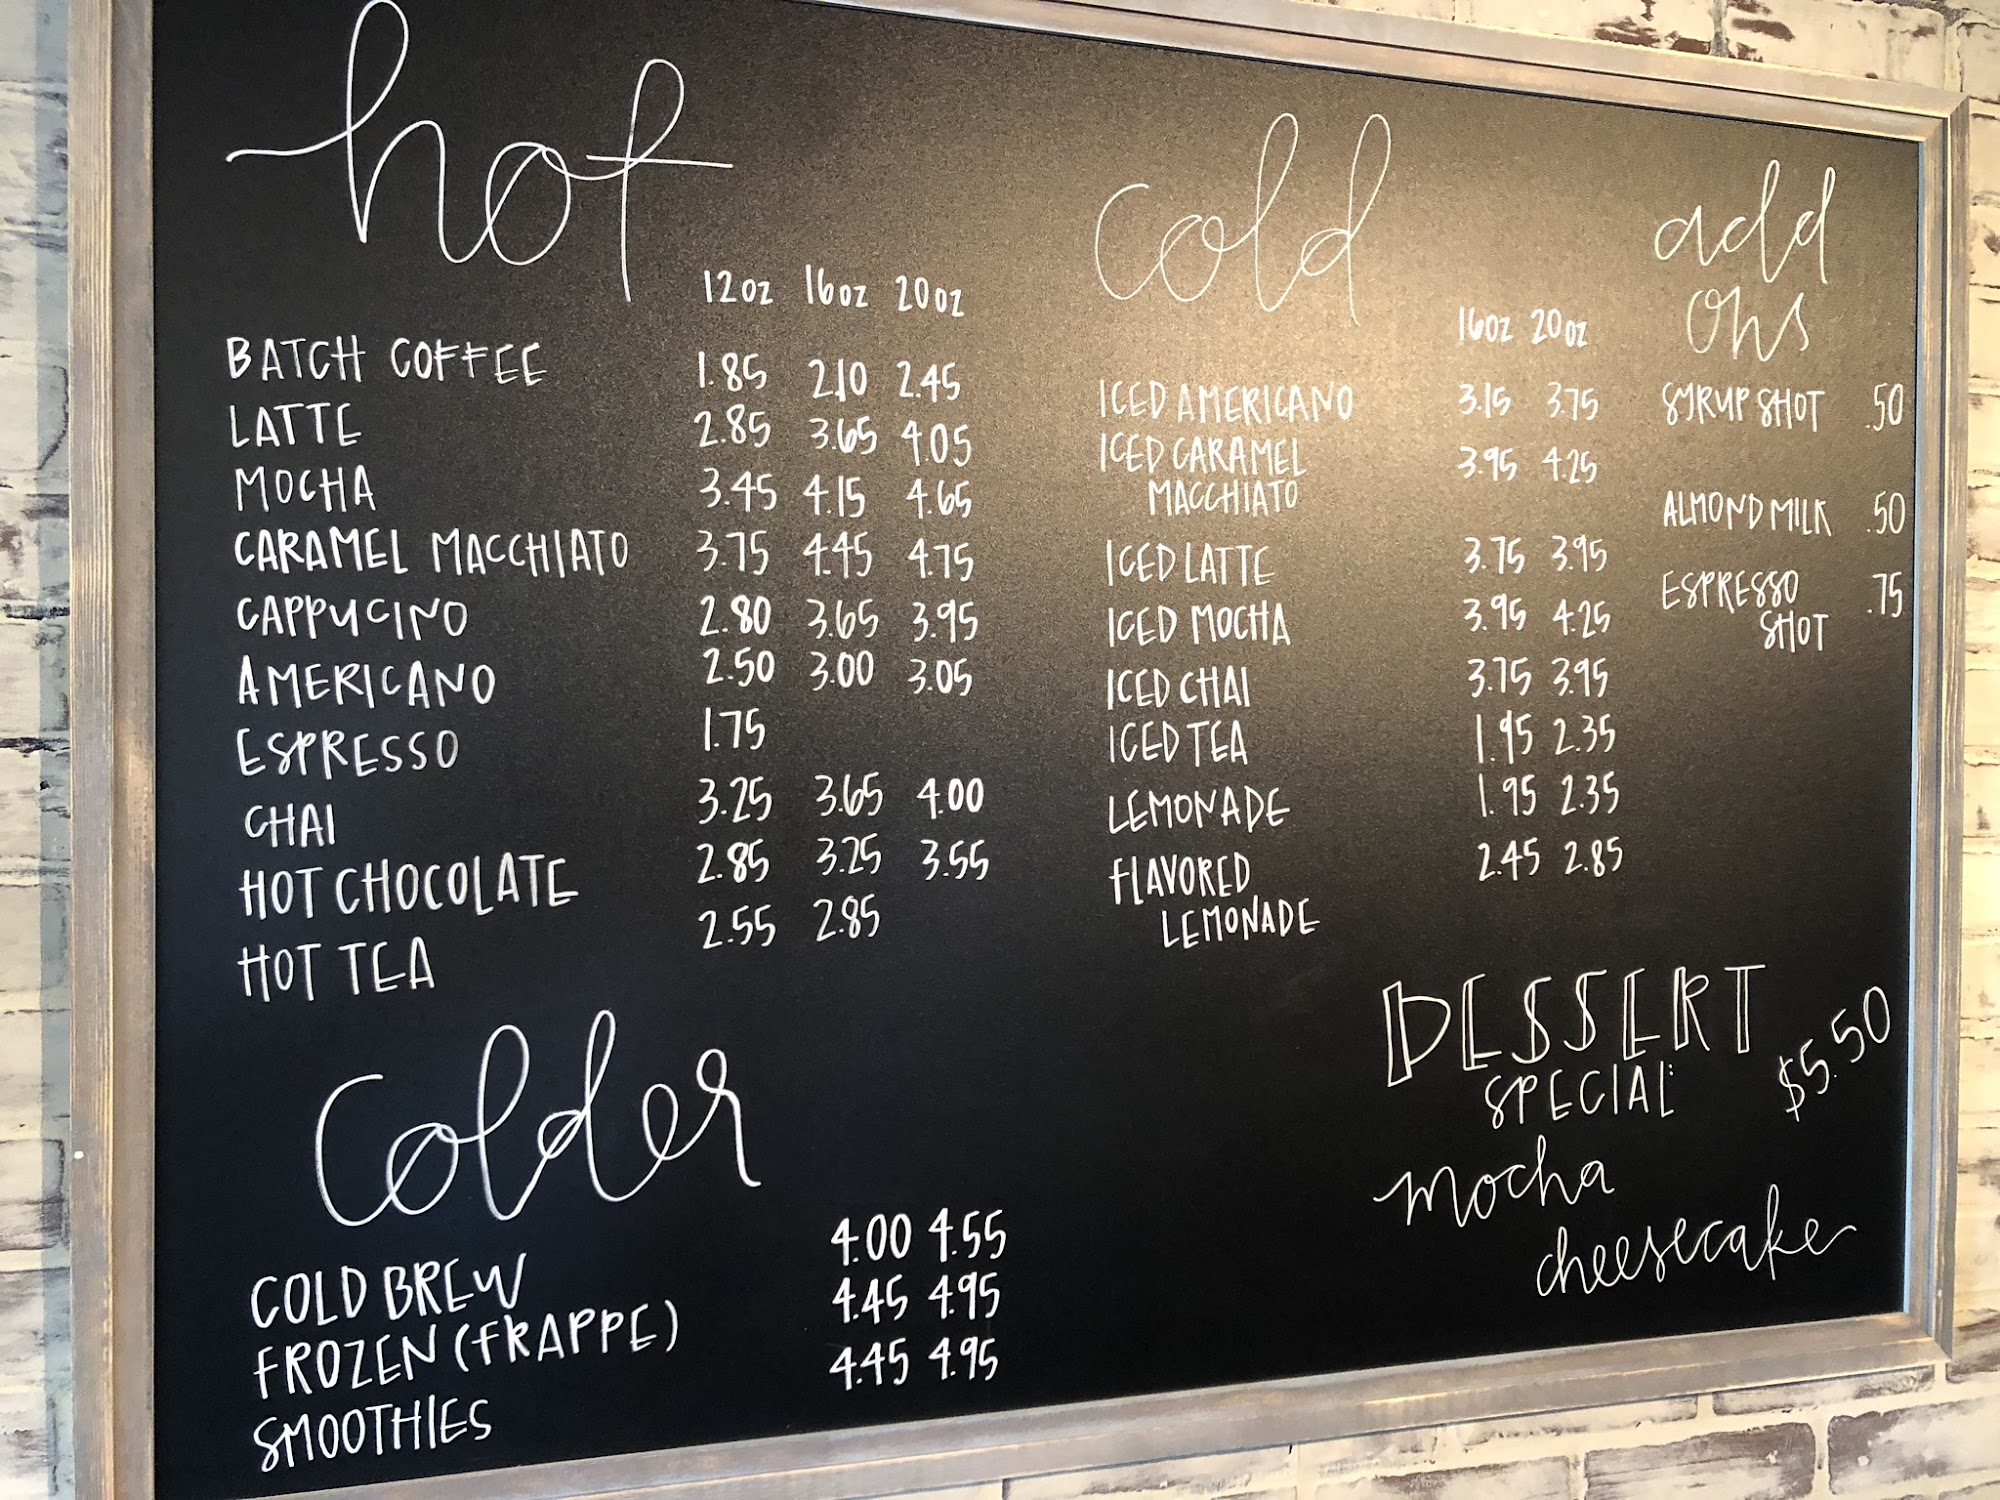 hot
12oz 16oz 20oz
BATCH COFFEE 1.85 2.10 2.45
LATTE 2.85 3.65 4.05
MOCHA 3.45 4.15 4.65
CARAMEL MACCHIATO 3.75 4.45 4.75
CAPPUCINO 2.80 3.65 3.95
AMERICANO 2.50 3.00 3.05
ESPRESSO 1.75
CHAI 3.25 3.65 4.00
HOT CHOCOLATE 2.85 3.25 3.55
HOT TEA 2.55 2.85
colder
COLD BREW 4.00 4.55
FROZEN (FRAPPE) 4.45 4.95
SMOOTHIES 4.45 4.95
cold
16oz 20oz
ICED AMERICANO 3.15 3.75
ICED CARAMEL 3.95 4.25
MACCHIATO
ICED LATTE 3.75 3.95
ICED MOCHA 3.95 4.25
ICED CHAI 3.75 3.95
ICED TEA 1.95 2.35
LEMONADE 1.95 2.35
FLAVORED 2.45 2.85
LEMONADE
add
ons
SYRUP SHOT .50
ALMOND MILK .50
ESPRESSO .75
SHOT
DESSERT
SPECIAL: $5.50
mocha
cheesecake